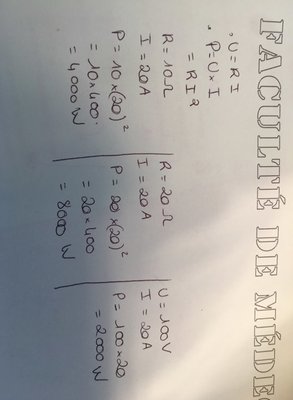 FACULTÉ DE MÉDE
• U = R I
• P = U × I
= R I²
R = 10 Ω
I = 20 A
P = 10 × (20)²
= 10 × 400
= 4000 W
R = 20 Ω
I = 20 A
P = 20 × (20)²
= 20 × 400
= 8000 W
U = 100 V
I = 20 A
P = 100 × 20
= 2000 W